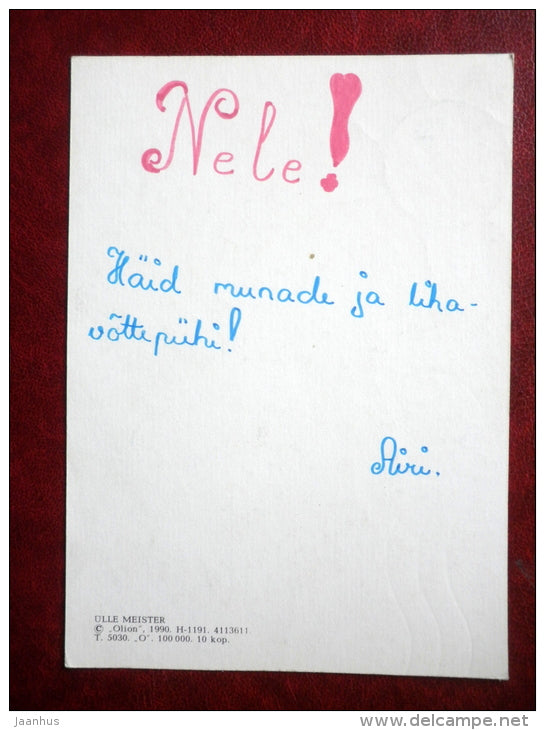 Nele!
Häid munade ja liha-
võttepühi!
Airi.
ÜLLE MEISTER
© „Olion", 1990. H-1191. 4113611.
T. 5030. „O". 100 000. 10 kop.
jaanhus
www.delcampe.net